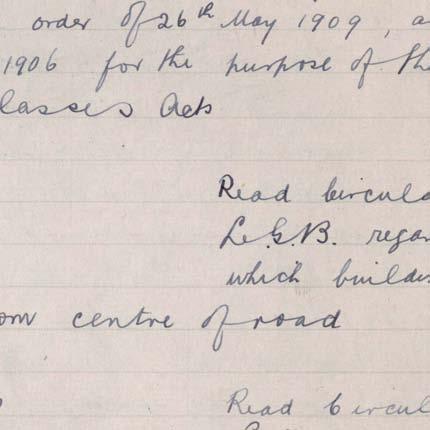 order of 26th May 1909, a
1906 for the purpose of the
lasses Acts
Read Circula
L.G.B. regar
which buildi
om centre of road
Read Circul